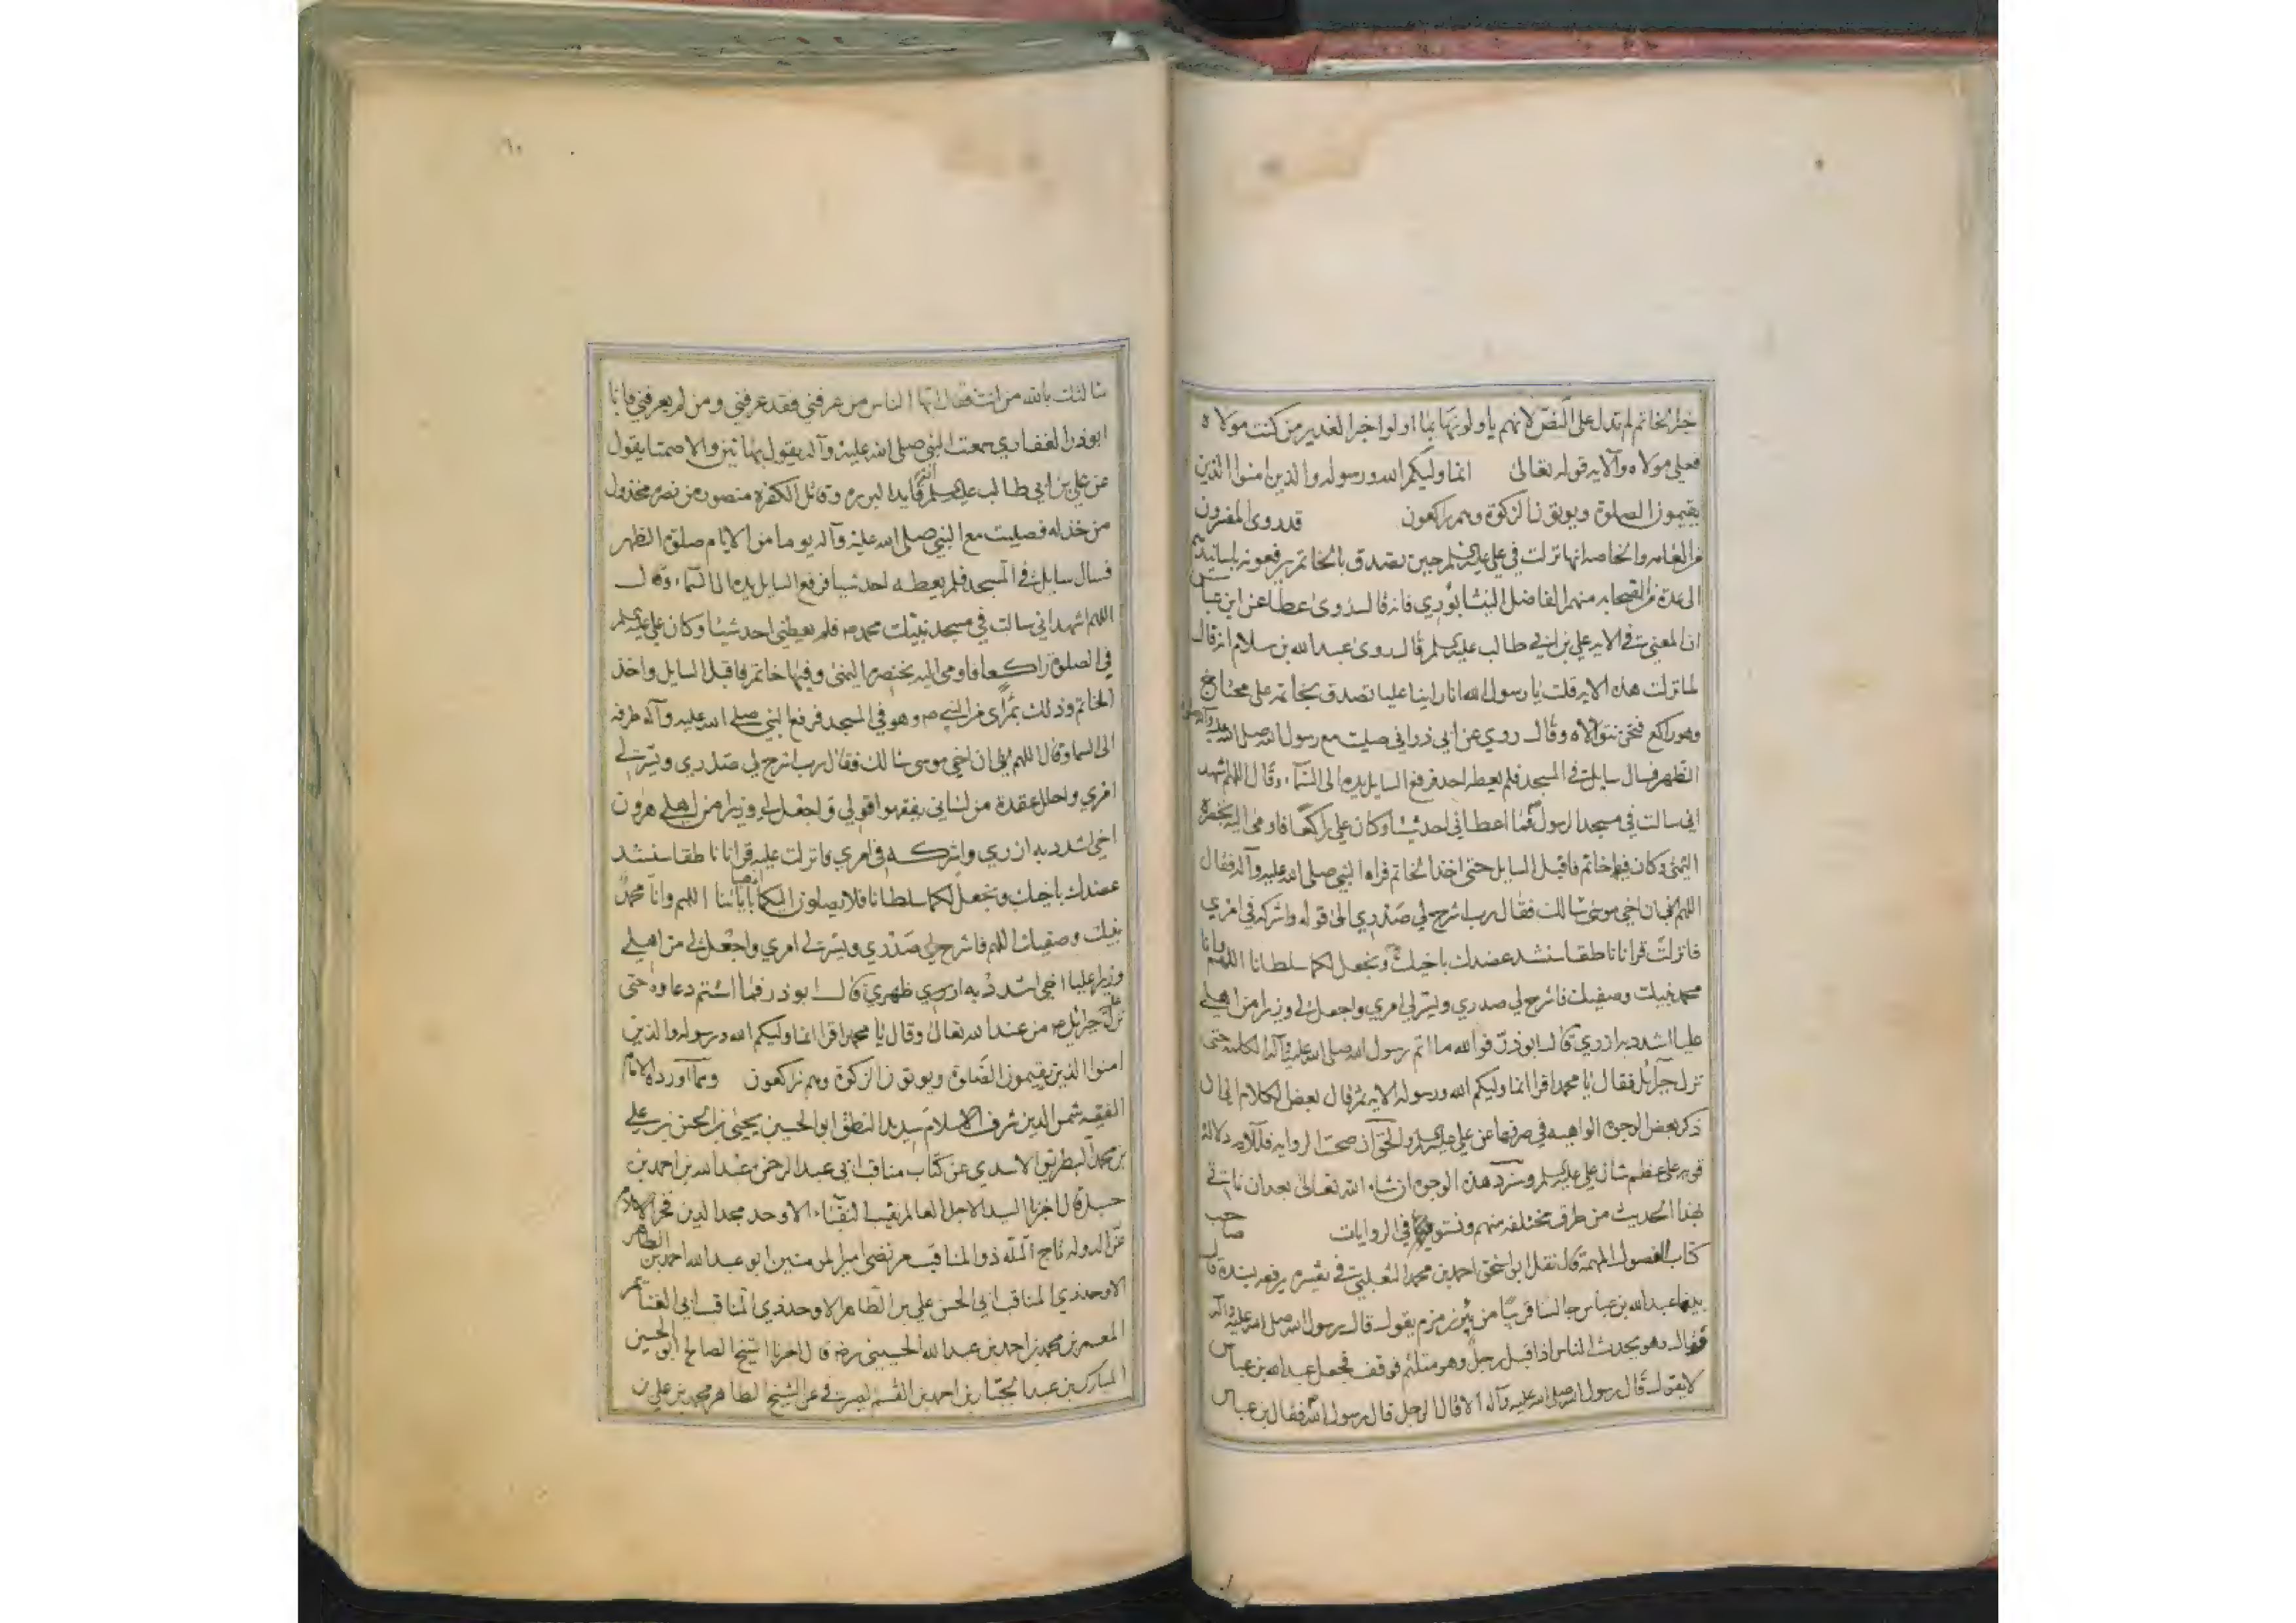 خبر الخاتم لم تدل على النص لانهم ياولونها بما اولوا خبر الغدير من كنت مولاه
فعلي مولاه والايه قوله تعالى انما وليكم الله ورسوله والذين امنوا الذين
يقيمون الصلوة ويوتون الزكوة وهم راكعون قد روى المفسرون
من العامه والخاصه انها نزلت في علي عليه السلم حين تصدق بالخاتم يرفعونه باسانيدهم
الى عدة من الصحابه منهم الفاضل النيشابوري فانه قال روى عطا عن ابن عباس
ان المعني في الايه علي بن ابي طالب عليه السلم قال روى عبد الله بن سلام انه قال
لما نزلت هذه الايه قلت يا رسول الله انا راينا عليا تصدق بخاتمه على محتاج
وهو راكع فنحن نتولاه وقال روي عن ابي ذر اني صليت مع رسول الله صلى الله عليه وآله صلوة
الظهر فسال سايل في المسجد فلم يعطه احد فرفع السايل يده الى السماء وقال اللهم اشهد
اني سالت في مسجد الرسول فما اعطاني احد شيئا وكان علي راكعا فاومى اليه بخنصره
اليمنى وكان فيها خاتم فاقبل السايل حتى اخذ الخاتم فراه النبي صلى الله عليه وآله فقال
اللهم ان اخي موسى سالك فقال رب اشرح لي صدري الى قوله واشركه في امري
فانزلت قرانا ناطقا سنشد عضدك باخيك ونجعل لكما سلطانا اللهم وانا
محمد نبيك وصفيك فاشرح لي صدري ويسر لي امري واجعل لي وزيرا من اهلي
عليا اشدد به ازري قال ابو ذر فوالله ما اتم رسول الله صلى الله عليه وآله الكلمه حتى
نزل جبرائل فقال يا محمد اقرا انما وليكم الله ورسوله الايه ثم قال بعض الكلام الى ان
ذكر بعض الوجوه الواهيه في صرفها عن علي عليه السلم والحق ان صحت الروايه فللآيه دلالة
قويه على عظم شان علي عليه السلم وسنرد هذه الوجوه ان شاء الله تعالى بعد ان ناتي
بهذا الحديث من طرق مختلفه منهم ونستوفيها في الروايات صاحب
كتاب الفصول المهمة قال نقل ابو اسحق احمد بن محمد الثعلبي في تفسيره يرفعه بسنده قال
بينا عبد الله بن عباس جالسا قريبا من بئر زمزم يقول قال رسول الله صلى الله عليه وآله
وهو يحدث الناس اذ اقبل رجل وهو متلثم فوقف فجعل عبد الله بن عباس
لا يقول قال رسول الله صلى الله عليه وآله الا قال الرجل قال رسول الله فقال بن عباس
سالتك بالله من انت فقال ايها الناس من عرفني فقد عرفني ومن لم يعرفني فانا
ابو ذر الغفاري سمعت النبي صلى الله عليه وآله يقول بهاتين والا صمتا يقول
عن علي بن ابي طالب عليه السلم انه قايد البرره وقاتل الكفره منصور من نصره مخذول
من خذله فصليت مع النبي صلى الله عليه وآله يوما من الايام صلوة الظهر
فسال سايل في المسجد فلم يعطه احد شيئا فرفع السايل يده الى السماء وقال
اللهم اشهد اني سالت في مسجد نبيك محمد ص فلم يعطني احد شيئا وكان علي عليه السلم
في الصلوة راكعا فاومى اليه بخنصره اليمنى وفيها خاتم فاقبل السايل واخذ
الخاتم وذلك بمرأى من النبي ص وهو في المسجد فرفع النبي صلى الله عليه وآله طرفه
الى السما وقال اللهم ان اخي موسى سالك فقال رب اشرح لي صدري ويسر لي
امري واحلل عقدة من لساني يفقهوا قولي واجعل لي وزيرا من اهلي هرون
اخي اشدد به ازري واشركه في امري فانزلت عليه قرانا ناطقا سنشد
عضدك باخيك ونجعل لكما سلطانا فلا يصلون اليكما بآياتنا اللهم وانا محمد
نبيك وصفيك اللهم فاشرح لي صدري ويسر لي امري واجعل لي من اهلي
وزيرا عليا اخي اشدد به ازري ظهري قال ابو ذر فما استتم دعاوه حتى
نزل جبرائل من عند الله تعالى وقال يا محمد اقرا انما وليكم الله ورسوله والذين
امنوا الذين يقيمون الصلوة ويوتون الزكوة وهم راكعون ومما اورده الامام
الفقيه شمس الدين شرف الاسلام سديد النطق ابو الحسين يحيى بن الحسن بن علي
بن محمد البطريق الاسدي عن كتاب مناقب ابي عبد الرحمن عبد الله بن احمد بن
حنبل قال اخبرنا السيد الاجل العالم نقيب النقباء الاوحد مجد الدين فخر الاسلام
عز الدوله تاج المله ذو المناقب مرتضى امير المومنين ابو عبد الله احمد بن الطاهر
الاوحد ذي المناقب ابي الحسن علي بن الطاهر الاوحد ذي المناقب ابي الغنائم
المعمر بن محمد بن احمد بن عبد الله الحسيني رضه قال اخبرنا الشيخ الصالح ابو الحسين
المبارك بن عبد الجبار بن احمد بن القسم الصيرفي عن الشيخ الطاهر محمد بن علي بن